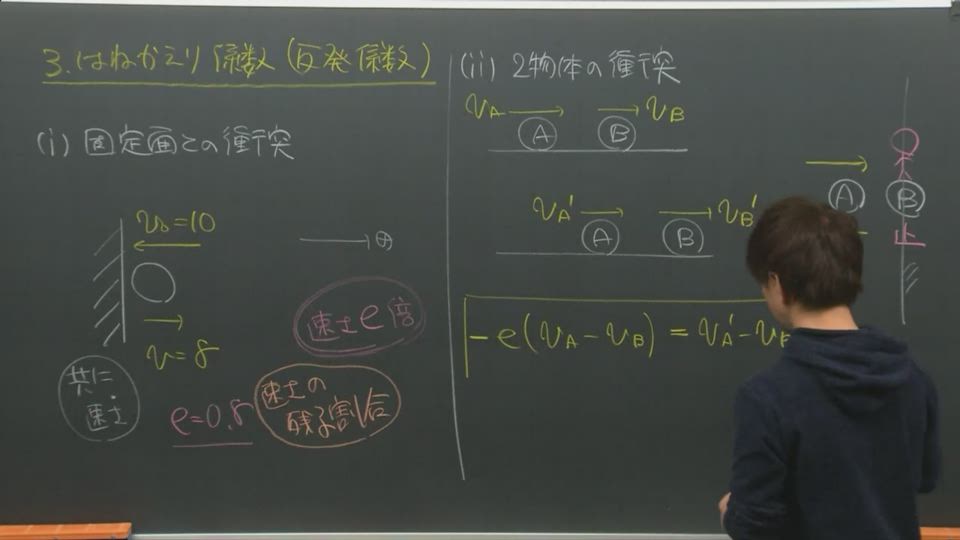 3.はねかえり係数(反発係数)
(i) 固定面との衝突
v₀=10
⊕
v=8
速さe倍
共に
速さ
e=0.8
速さの
残る割合
(ii) 2物体の衝突
vA
vB
A
B
vA'
vB'
A
B
-e(vA-vB)=vA'-vB
A
B
止